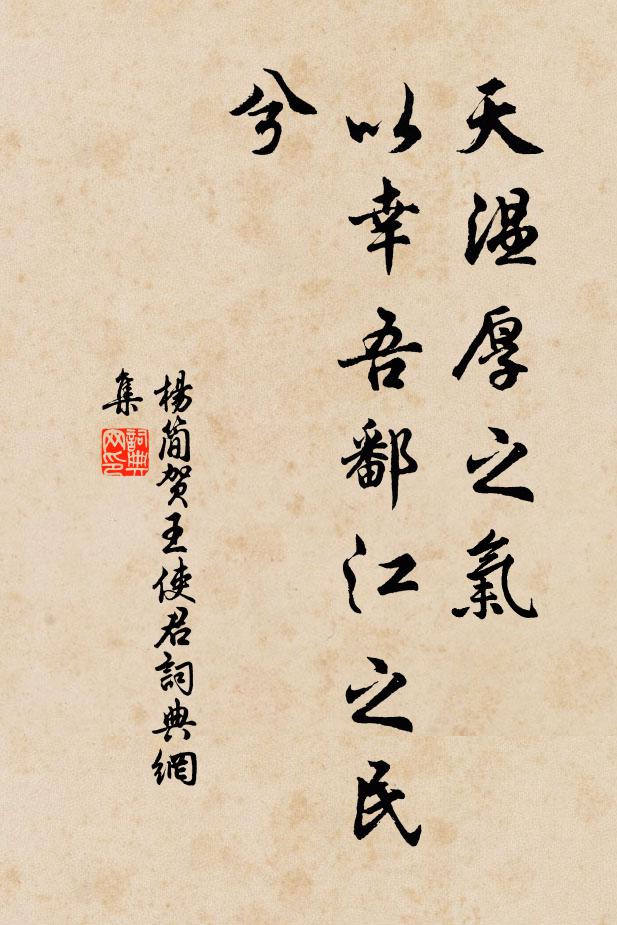 天溫厚之氣
以幸吾鄱江之民
兮
楊簡賀王使君詞典網
集
詞典
网印